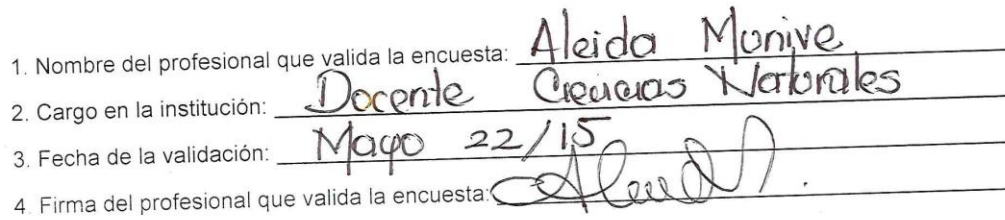 1. Nombre del profesional que valida la encuesta: Aleida Monive
2. Cargo en la institución: Docente Ciencias Naturales
3. Fecha de la validación: Mayo 22/15
4. Firma del profesional que valida la encuesta: